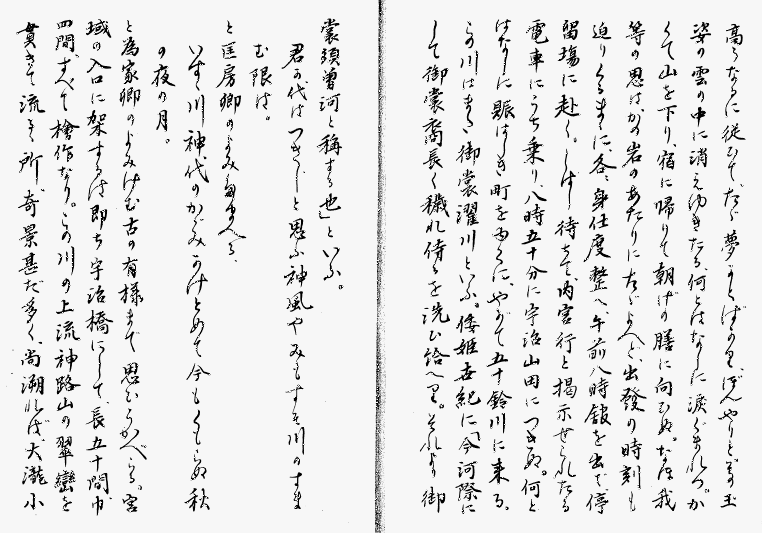 高らなるに従ひて、たゞ夢かとばかり、ぼんやりとその玉
姿の雲の中に消えゆきたる、何とはなしに涙ぐまれつ。か
くて山を下り、宿に帰りて朝げの膳に向ひぬ。なほ我
等の思はかの岩のあたりにたゞよへど、出發の時刻も
迫りくるまゝに、各、身仕度整へ、午前八時舘を出で停
留場に赴く。しばし待ちて、内宮行と掲示せられたる
電車にうち乗り、八時五十分に宇治山田につきぬ。何と
はなしに賑はしき町をゆくに、やがて五十鈴川に来る。
この川はまた御裳濯川といふ。倭姫世紀に「今河際に
して御裳裔長く穢れ侍るを洗ひ給へり。それより御
裳須曽河と称する也」といふ。
君が代はつきじと思ふ神風やみもすそ川のすま
む限は。
と匡房卿のよみ給へる、
いすゞ川神代のかゞみかけとめて今もくもらぬ秋
の夜の月。
と為家卿のよみけむ古の有様まで思ひうかべらる。宮
域の入口に架するは即ち宇治橋にして、長五十間巾
四間、すべて檜作なり。この川の上流神路山の翠巒を
貫きて流るゝ所、奇景甚だ多く、尚溯れば、犬瀧小